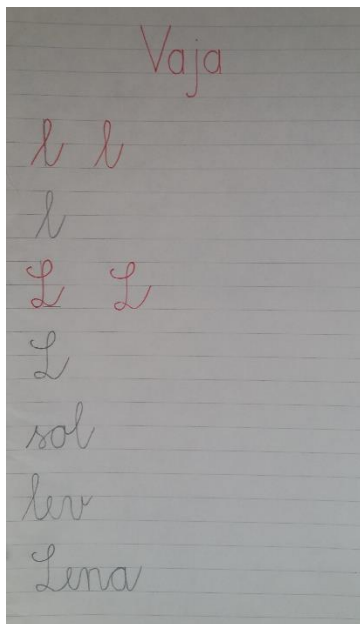 Vaja
l l
l
L L
L
sol
lev
Lena